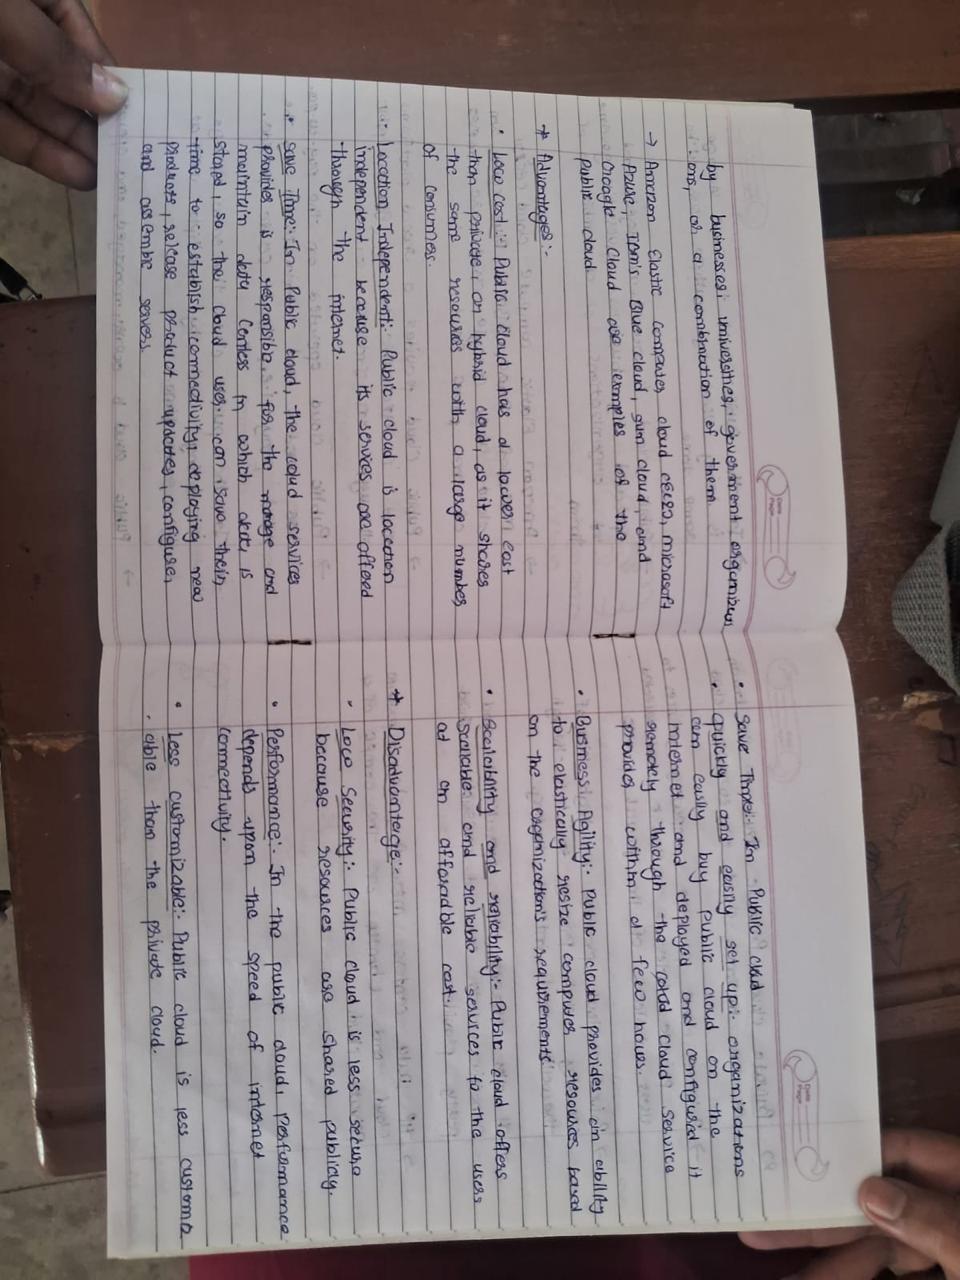 by businesses, universities, government organizati
ons, or a combination of them.
→ Amazon Elastic computer cloud (EC2), microsoft
Azure, IBM's Blue cloud, sun cloud, and
Google Cloud are examples of the
public cloud
* Advantages:-
• Low cost:- Public cloud has a lower cost
than private, or hybrid cloud, as it shares
the same resources with a large number
of consumers.
• Location Independent:- Public cloud is location
independent because its services are offered
through the internet.
• save Time:- In Public cloud, the cloud services
provides is responsible for the manage and
maintain data centers in which data is
stored, so the cloud user can save their
time to establish connectivity, deploying new
products, release product updates, configure,
and assemble servers.
• save Time:- In Public cloud
• quickly and easily set up:- organizations
can easily buy public cloud on the
internet and deployed and configured it
remotely through the cloud service
provides within a few hours.
• Business Agility:- Public cloud provides an ability
to elastically resize computer resources based
on the organization's requirements
• Scalability and reliability:- Public cloud offers
scalable and reliable services to the users
at an affordable cost.
* Disadvantage:-
• Low Security:- Public cloud is less secure
because resources are shared publicly.
• Performance:- In the public cloud, performance
depends upon the speed of internet
connectivity.
• Less customizable:- Public cloud is less customiz
able than the private cloud.